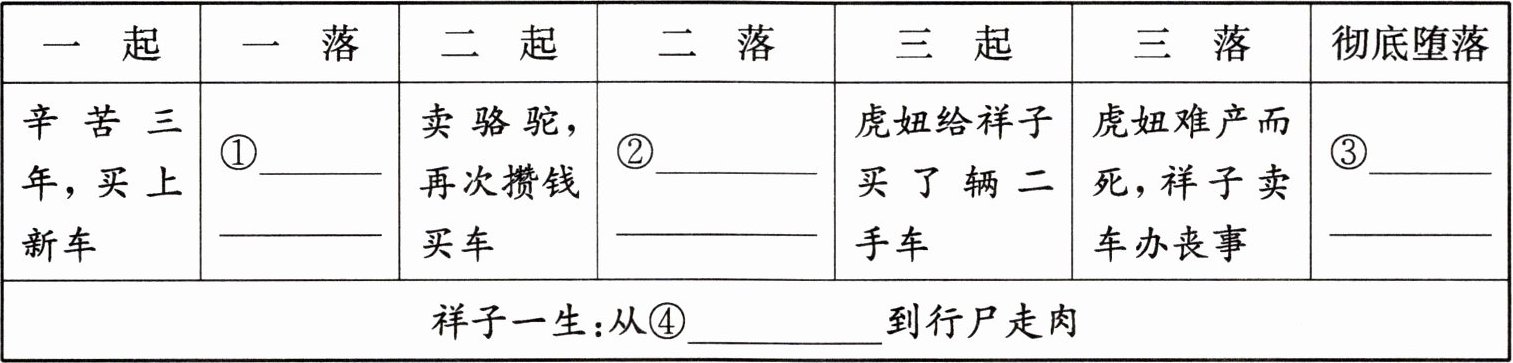 一起 一落 二起 二落 三起 三落 彻底堕落
辛苦三年,买上新车
①________
卖骆驼,再次攒钱买车
②________
虎妞给祥子买了辆二手车
虎妞难产而死,祥子卖车办丧事
③________
祥子一生:从④________到行尸走肉